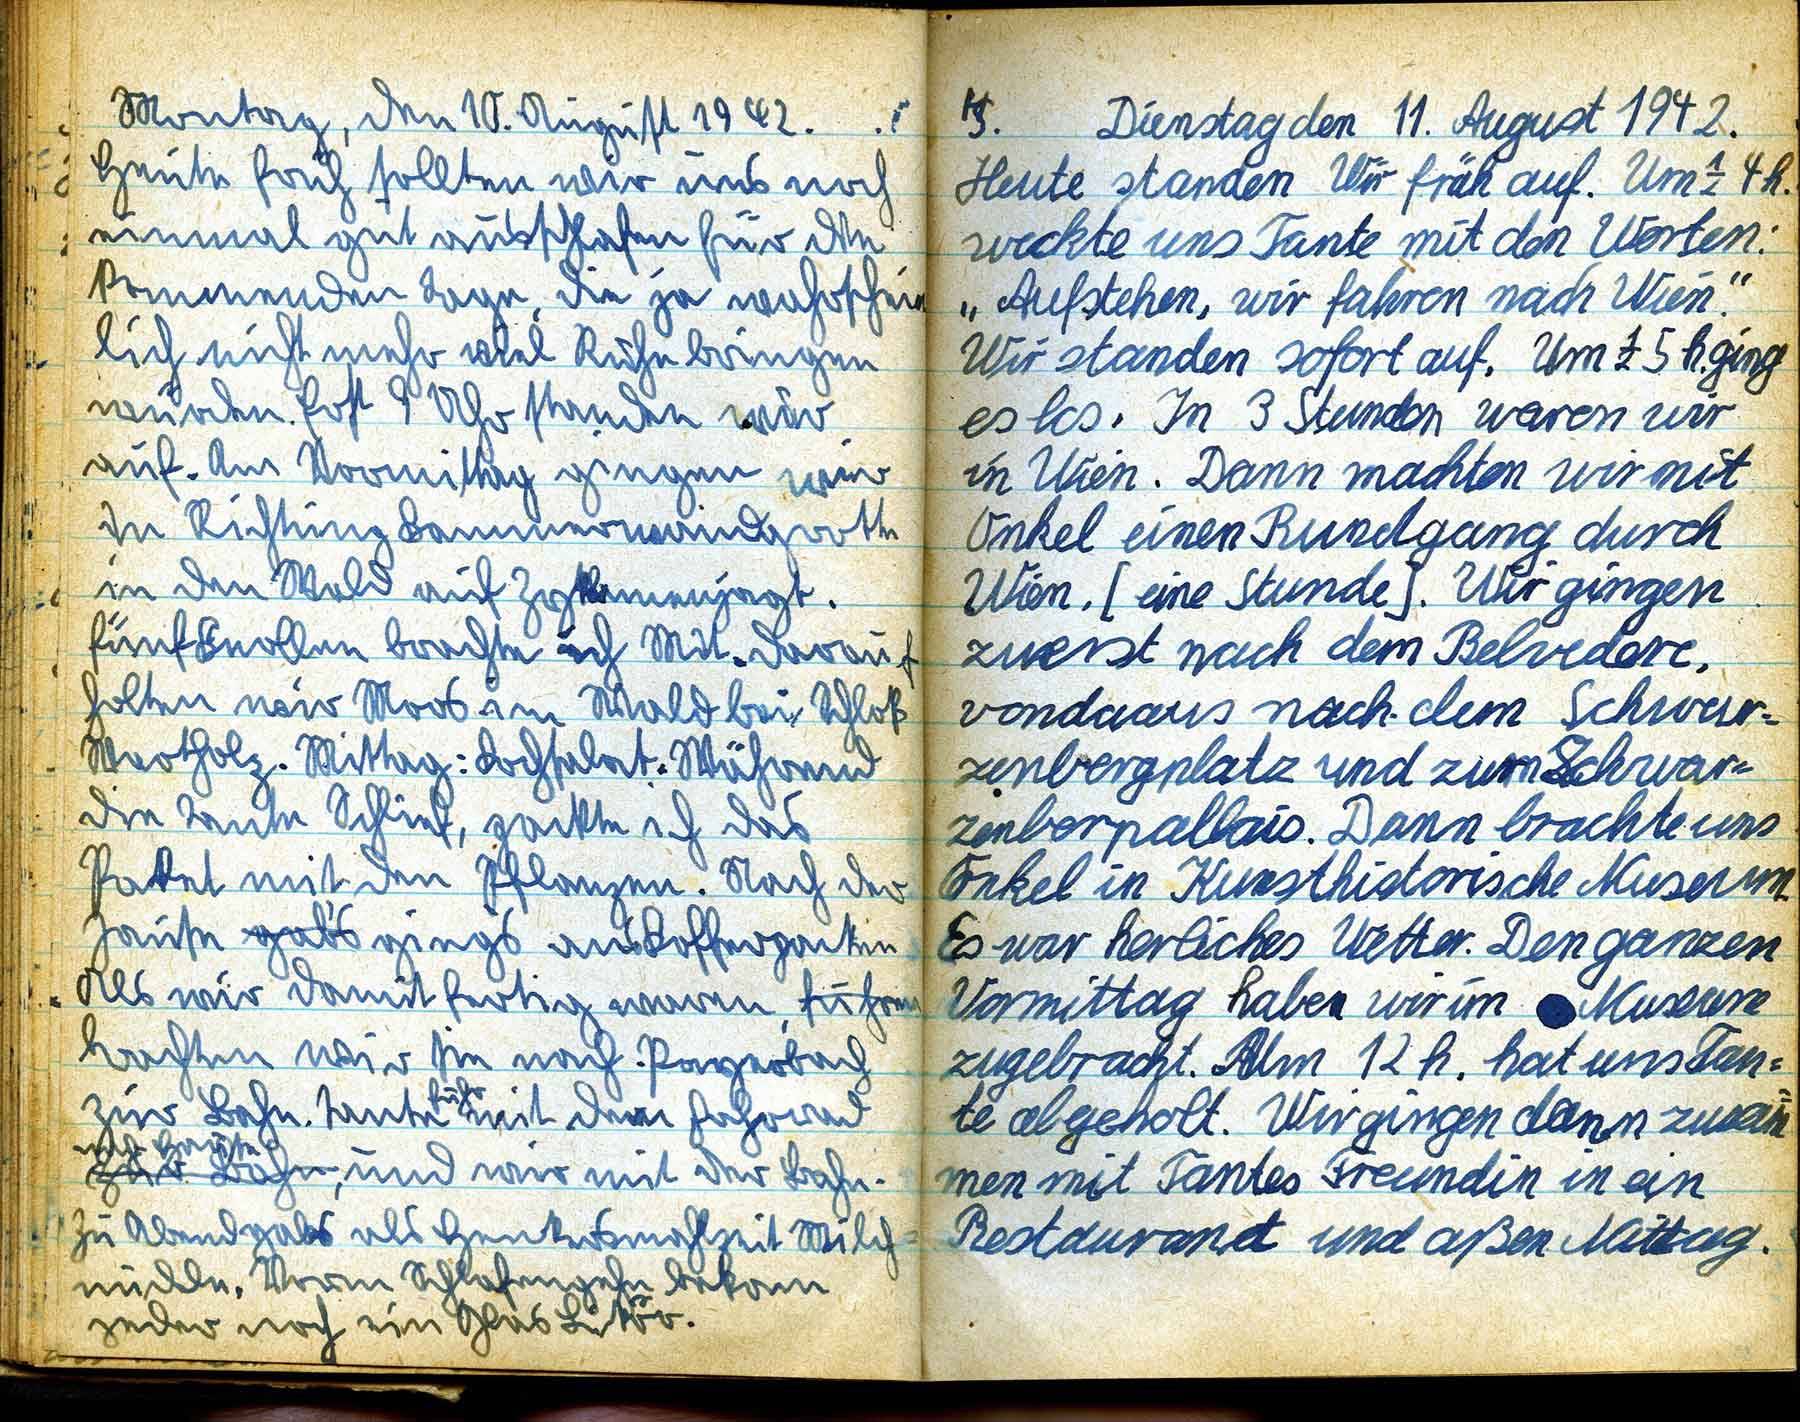 Montag, den 10. August 1942.
Heute früh sollten wir uns noch
einmal gut ausschlafen für die
kommenden Tage, die ja wahrschein
lich nicht mehr viel Ruhe bringen
würden. Erst 9 Uhr standen wir
auf. Am Vormittag gingen wir
in Richtung Kammerwandgrotte
in den Wald auf Zyklamenjagt.
fünf Knollen brachte ich Mit. Darauf
holten wir Moos im Wald bei Schloß
Wartholz. Mittag: Kochsalat. Während
die Tante Schlief, packte ich das
Paket mit den Pflanzen. Nach der
Jause gab's ging's ans Kofferpacken
Als wir damit fertig waren, fuhren
brachten wir sie nach Payerbach
zur Bahn. Tante fuhr mit dem Fahrrad
nach Hause
zur Bahn, und wir mit der Bahn.
Zu Abend gabs als Henkersmahlzeit Milch=
nudeln. Vorm Schlafengehn bekam
jeder noch ein Glas Likör.
Dienstag den 11. August 1942.
Heute standen Wir früh auf. Um ½ 4 h.
weckte uns Tante mit den Worten:
„Aufstehen, wir fahren nach Wien."
Wir standen sofort auf. Um ½ 5 h. ging
es los. In 3 Stunden waren wir
in Wien. Dann machten wir mit
Onkel einen Rundgang durch
Wien. [eine Stunde]. Wir gingen
zuerst nach dem Belvedere,
von da aus nach dem Schwar=
zenbergplatz und zum Schwar=
zenberpallais. Dann brachte uns
Onkel in Kunsthistorische Museum
Es war herliches Wetter. Den ganzen
Vormittag haben wir im Museum
zugebracht. Um 12 h. hat uns Tan=
te abgeholt. Wir gingen dann zusam
men mit Tantes Freundin in ein
Restaurant und aßen Mittag.